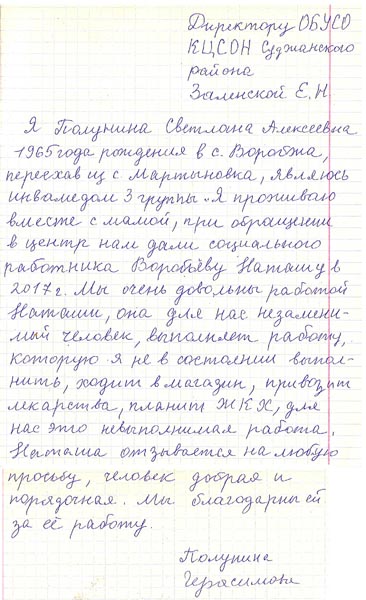 Директору ОБУСО
КЦСОН Суджанского
района
Заленской Е.Н.
Я Полунина Светлана Алексеевна
1965 года рождения в с. Воробжа,
переехав из с Мартыновка, являюсь
инвалидом 3 группы. Я проживаю
вместе с мамой, при обращении
в центр нам дали социального
работника Воробьёву Наташу в
2017 г. Мы очень довольны работой
Наташи, она для нас незамени-
мый человек, выполняет работу,
которую я не в состоянии выпол-
нить, ходит в магазин, привозит
лекарства, платит ЖКХ, для
нас это невыполнимая работа.
Наташа отзывается на любую
просьбу, человек добрая и
порядочная. Мы благодарны ей
за её работу.
Полунина
Герасимова